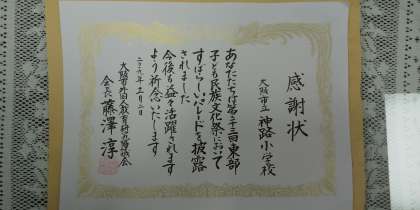 感謝状
大阪市立 神路小学校
あなたたちは第二十三回東部
子ども民族文化祭において
すばらしいパレードを披露
されました
今後も益々活躍されます
よう祈念いたします
大阪市外国人教育研究協議会
会長 藤澤 淳